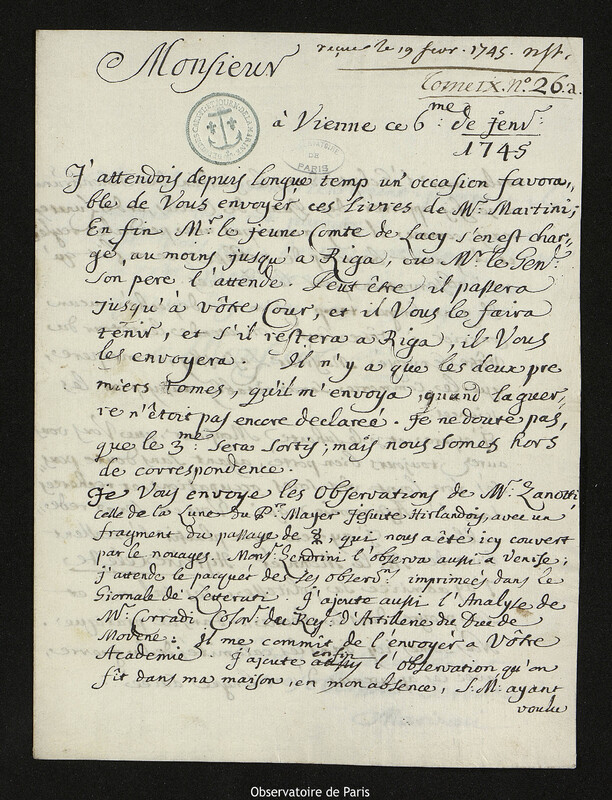 reçue le 19 fevr. 1745. nst.
Monsieur
Tome IX. nº 26.a.
à Vienne ce 6me de Jenv:
1745
J'attendois depuis longue temp un' occasion favora„
ble de Vous envoyer ces livres de Mr. Martini;
En fin Mr. le jeune Comte de Lacy s'en est char„
gé, au moins jusqu'a Riga, ou Mr. le Gen:
son pere l'attende. Peut être il passera
jusqu'à vôtre Cour, et il Vous le faira
tenir, et s'il restera a Riga, il Vous
les envoyera. Il n'y a que les deux pre
miers tomes, qu'il m'envoya, quand la guer„
re n'étoit pas encore declareé. Je ne doute pas,
que le 3me sera sortis; mais nous somes hors
de correspondence.
Je Vous envoye les Observations de Mr. Zanotti
celle de la Lune du Pr. Mayer Jesuite Hirlandois, avec un
fragment du passage de ☿, qui nous a été icy couvert
par le nouages. Monsr. Zendrini l'observa aussi a Venise;
j'attende le pacquet des ses observns imprimeés dans le
Giornale de Letterati. J'ajoute aussi l'Analyse de
Mr. Corradi Colonl. du Regt. d'Artillerie du Duc de
Modene: Il me commit de l'envoyer a Vôtre
Academie. J'ajoute enfin l'Observation, qu'on
fit dans ma maison, en mon absence, S: M: ayant
voulu
PARIS
Observatoire de Paris